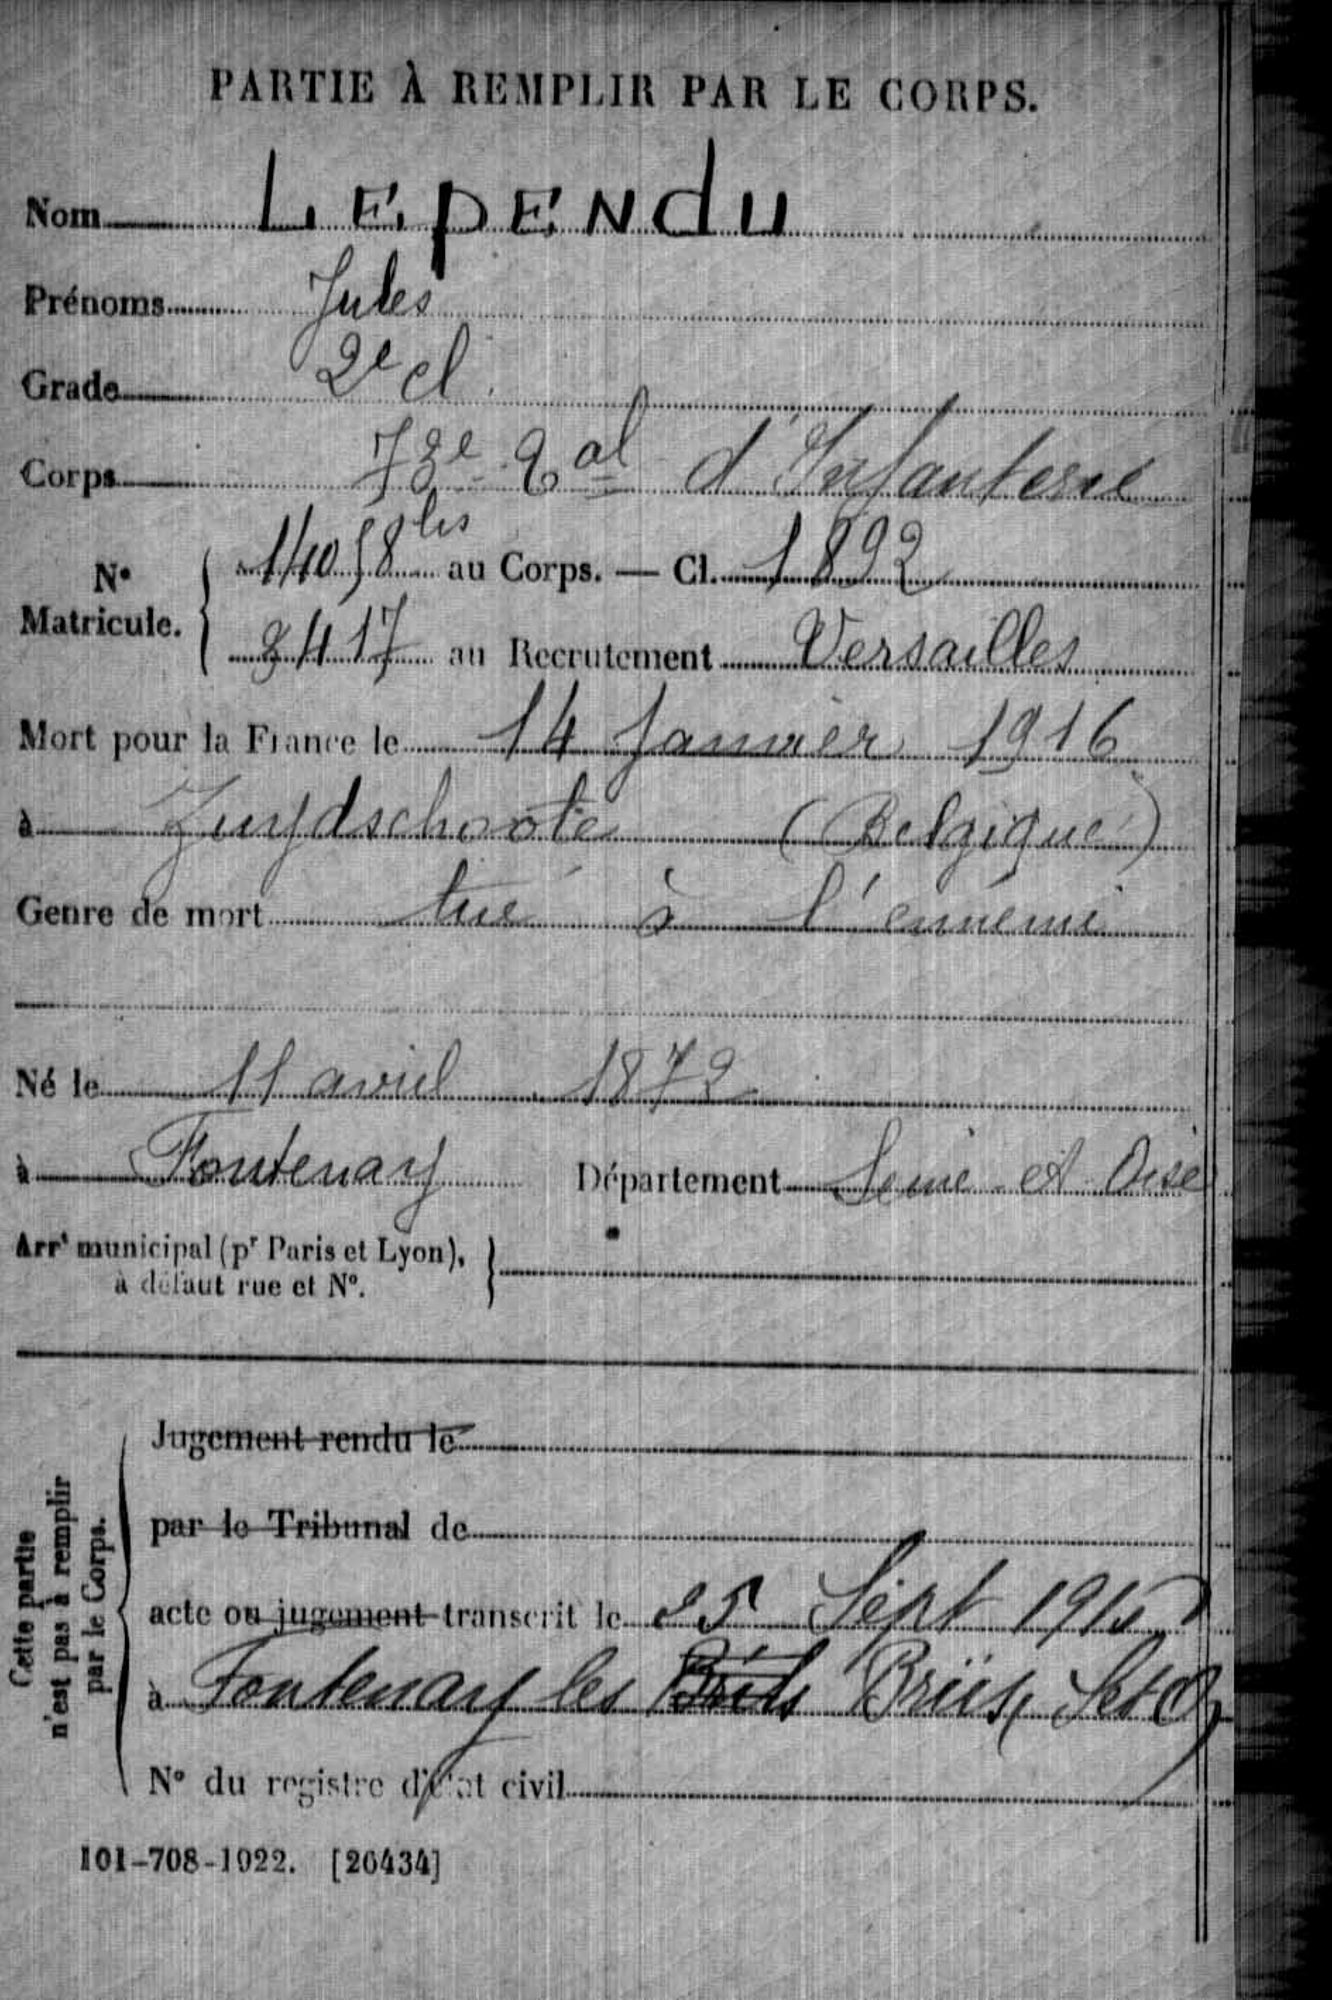 PARTIE À REMPLIR PAR LE CORPS.
Nom LEPENdU
Prénoms Jules
Grade 2e cl.
Corps 73e tal d'Infanterie
No Matricule. 14058 bis au Corps. — Cl. 1892
8417 au Recrutement Versailles
Mort pour la France le 14 Janvier 1916
à Zuydschoote (Belgique)
Genre de mort tué à l'ennemi
Né le 11 avril 1872
à Fontenay Département Seine et Oise
Arrt municipal (pr Paris et Lyon),
à défaut rue et No.
Cette partie
n'est pas à remplir
par le Corps.
Jugement rendu le
par le Tribunal de
acte ou jugement transcrit le 25 Sept 1916
à Fontenay les Briis Briis, S et O
No du registre d'état civil
101-708-1922. [26434]